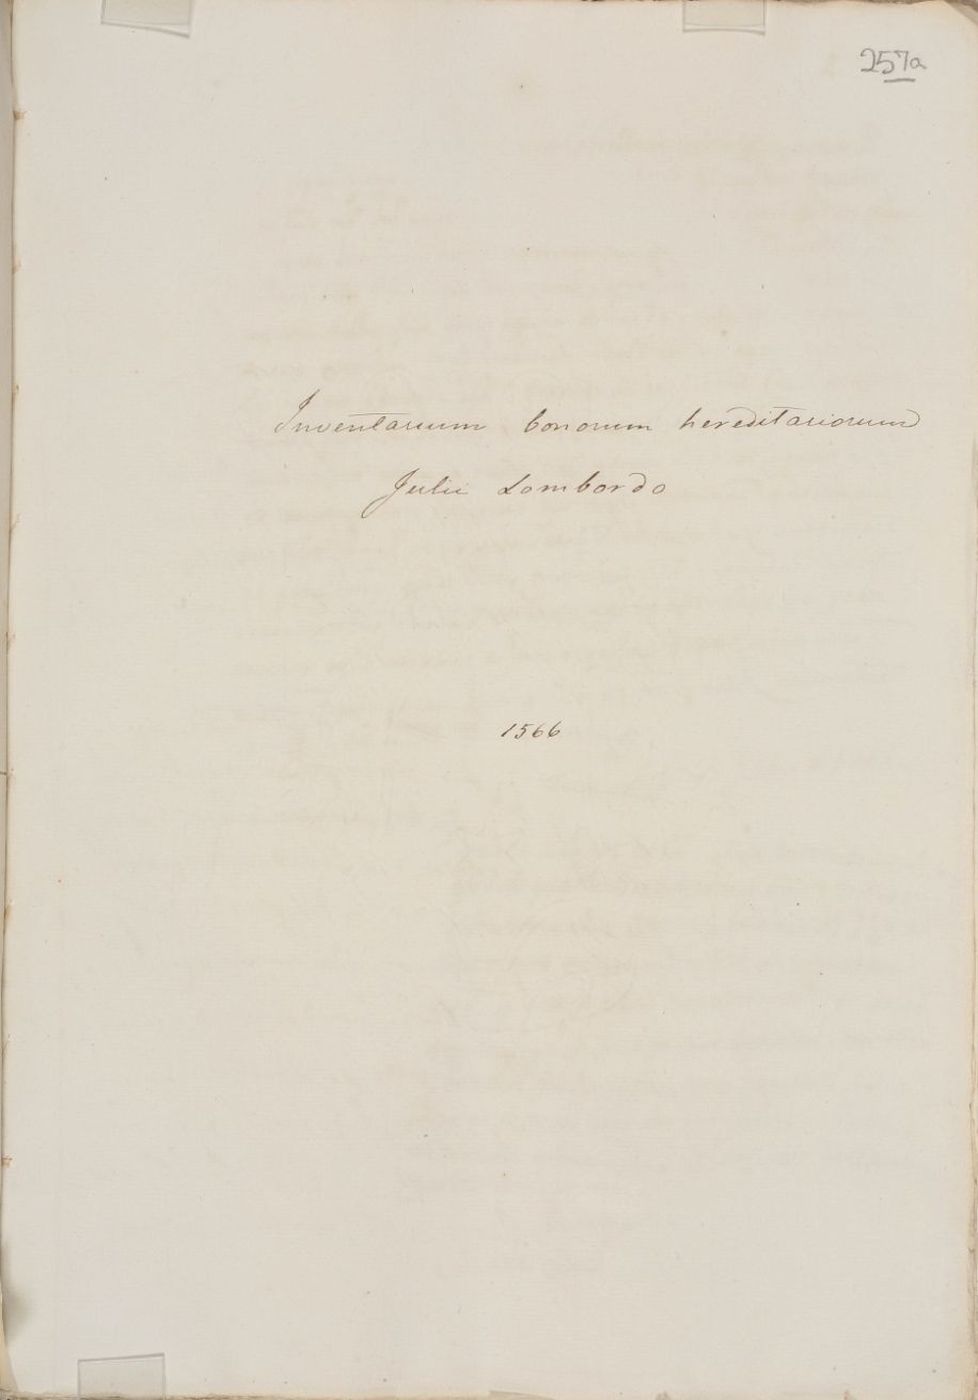 257a
Inventarium bonorum hereditariorum
Julii Lombardo
1566